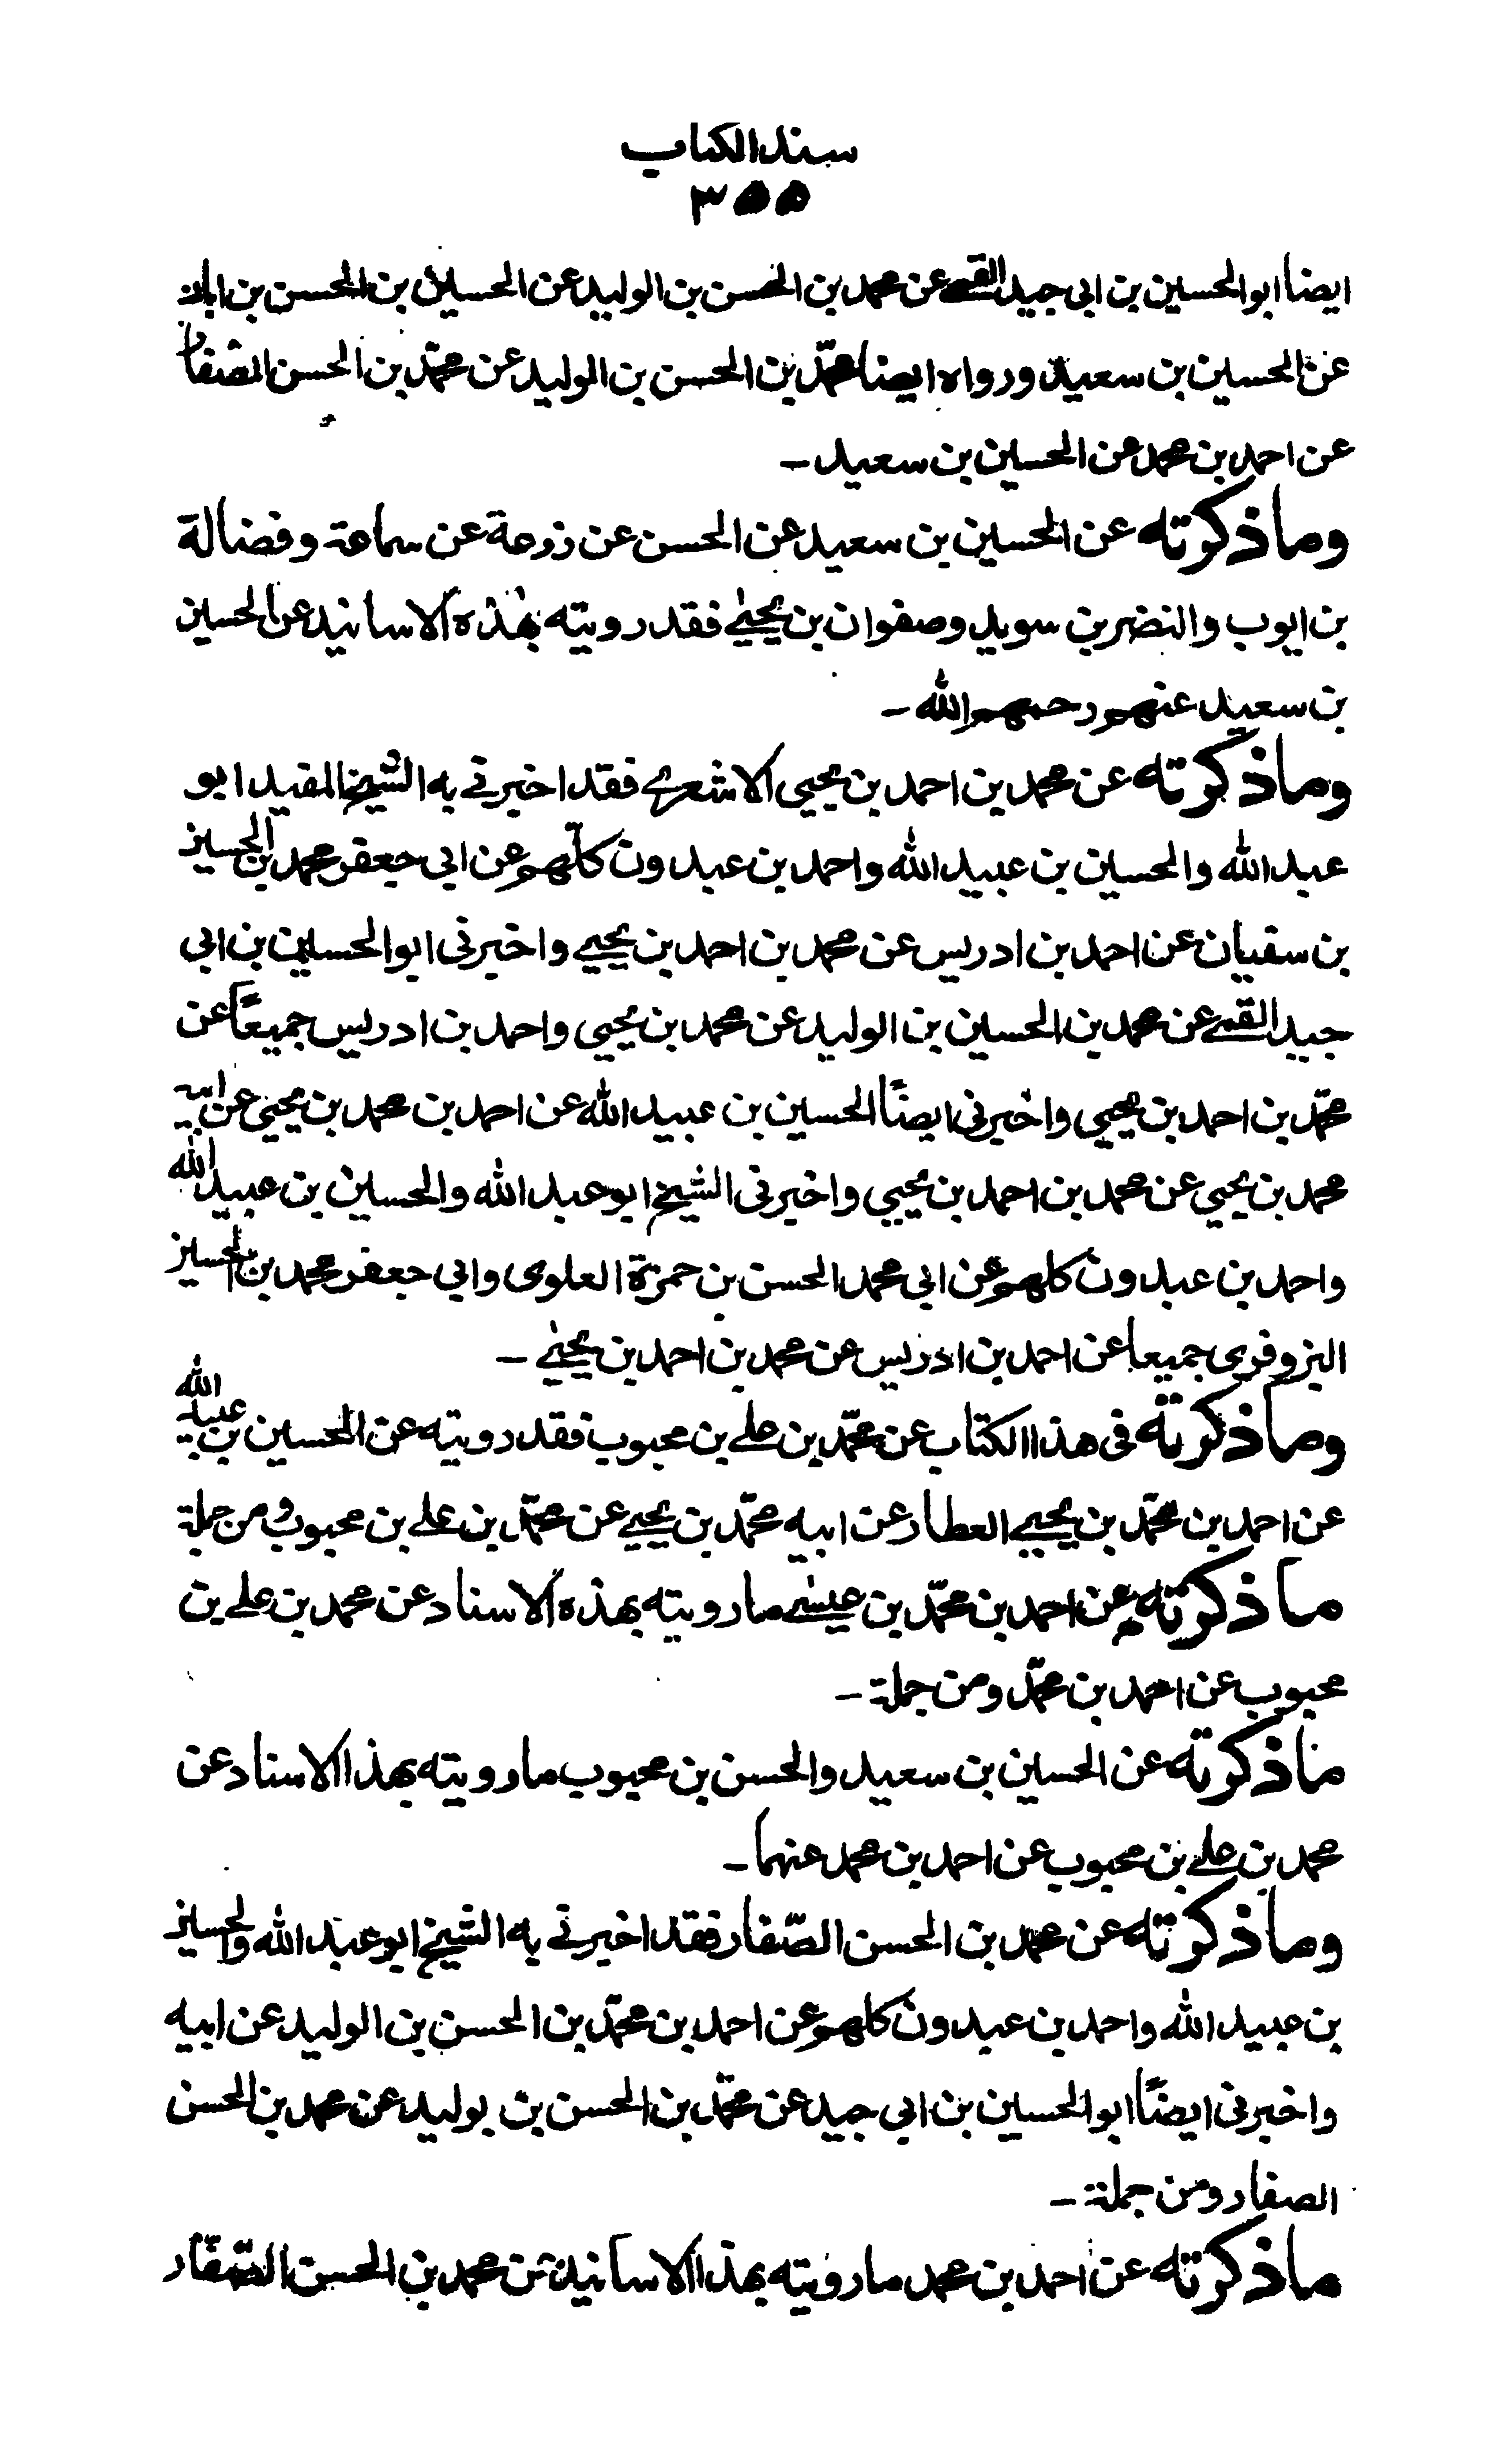 سند الكتاب
٣٥٥
ايضا ابوالحسين بن ابى جيد القمے عن محمد بن الحسن بن الوليد عن الحسين بن الحسن بن ابان
عن الحسين بن سعيد ورواه ايضا محمّد بن الحسن بن الوليد عن محمّد بن الحسن الصّفار
عن احمد بن محمد عن الحسين بن سعيد ـ
وما ذكرته عن الحسين بن سعيد عن الحسن عن زرعة عن سماعة وفضالة
بن ايوب والنضر بن سويد وصفوان بن يحيٰے فقد رويته بهٰذه الاسانيد عن الحسين
بن سعيد عنهم رحمهم الله ـ
وما ذكرته عن محمد بن احمد بن يحيى الاشعرے فقد اخبرنے به الشيخ المفيد ابو
عبد الله والحسين بن عبيد الله واحمد بن عبدون كلّهم عن ابي جعفر محمد بن الحسين
بن سفيان عن احمد بن ادريس عن محمد بن احمد بن يحيے واخبرنى ابوالحسين بن ابى
جيد القمے عن محمد بن الحسين بن الوليد عن محمد بن يحيى واحمد بن ادريس جميعًا عن
محمّد بن احمد بن يحيى واخبرنى ايضًا الحسين بن عبيد الله عن احمد بن محمد بن يحيى عن ابيه
محمد بن يحيى عن محمد بن احمد بن يحيى واخبرنى الشيخ ابو عبد الله والحسين بن عبيد الله
واحمد بن عبدون كلهم عن ابى محمد الحسن بن حمزة العلوى وابي جعفر محمد بن الحسين
البزوفرى جميعا عن احمد بن ادريس عن محمد بن احمد بن يحيٰے ـ
وما ذكرته فى هذا الكتاب عن محمّد بن علے بن محبوب فقد رويته عن الحسين بن عبيد الله
عن احمد بن محمّد بن يحيے العطار عن ابيه محمّد بن يحيے عن محمّد بن علے بن محبوب ومن جملة
ما ذكرته عن احمد بن محمّد بن عيسٰے ما رويته بهذه الاسناد عن محمد بن علے بن
محبوب عن احمد بن محمّد ومن جملة ـ
ما ذكرته عن الحسين بن سعيد والحسن بن محبوب ما رويته بهذا الاسناد عن
محمد بن علے بن محبوب عن احمد بن محمد عنهما ـ
وما ذكرته عن محمد بن الحسن الصّفار فقد اخبرنے به الشيخ ابو عبد الله والحسين
بن عبيد الله واحمد بن عبدون كلهم عن احمد بن محمّد بن الحسن بن الوليد عن ابيه
واخبرنى ايضًا ابوالحسين بن ابي جيد عن محمّد بن الحسن بن بوليد عن محمد بن الحسن
الصفار ومن جملة ـ
ما ذكرته عن احمد بن محمد ما رويته بهذا الاسانيد عن محمد بن الحسن الصّفار